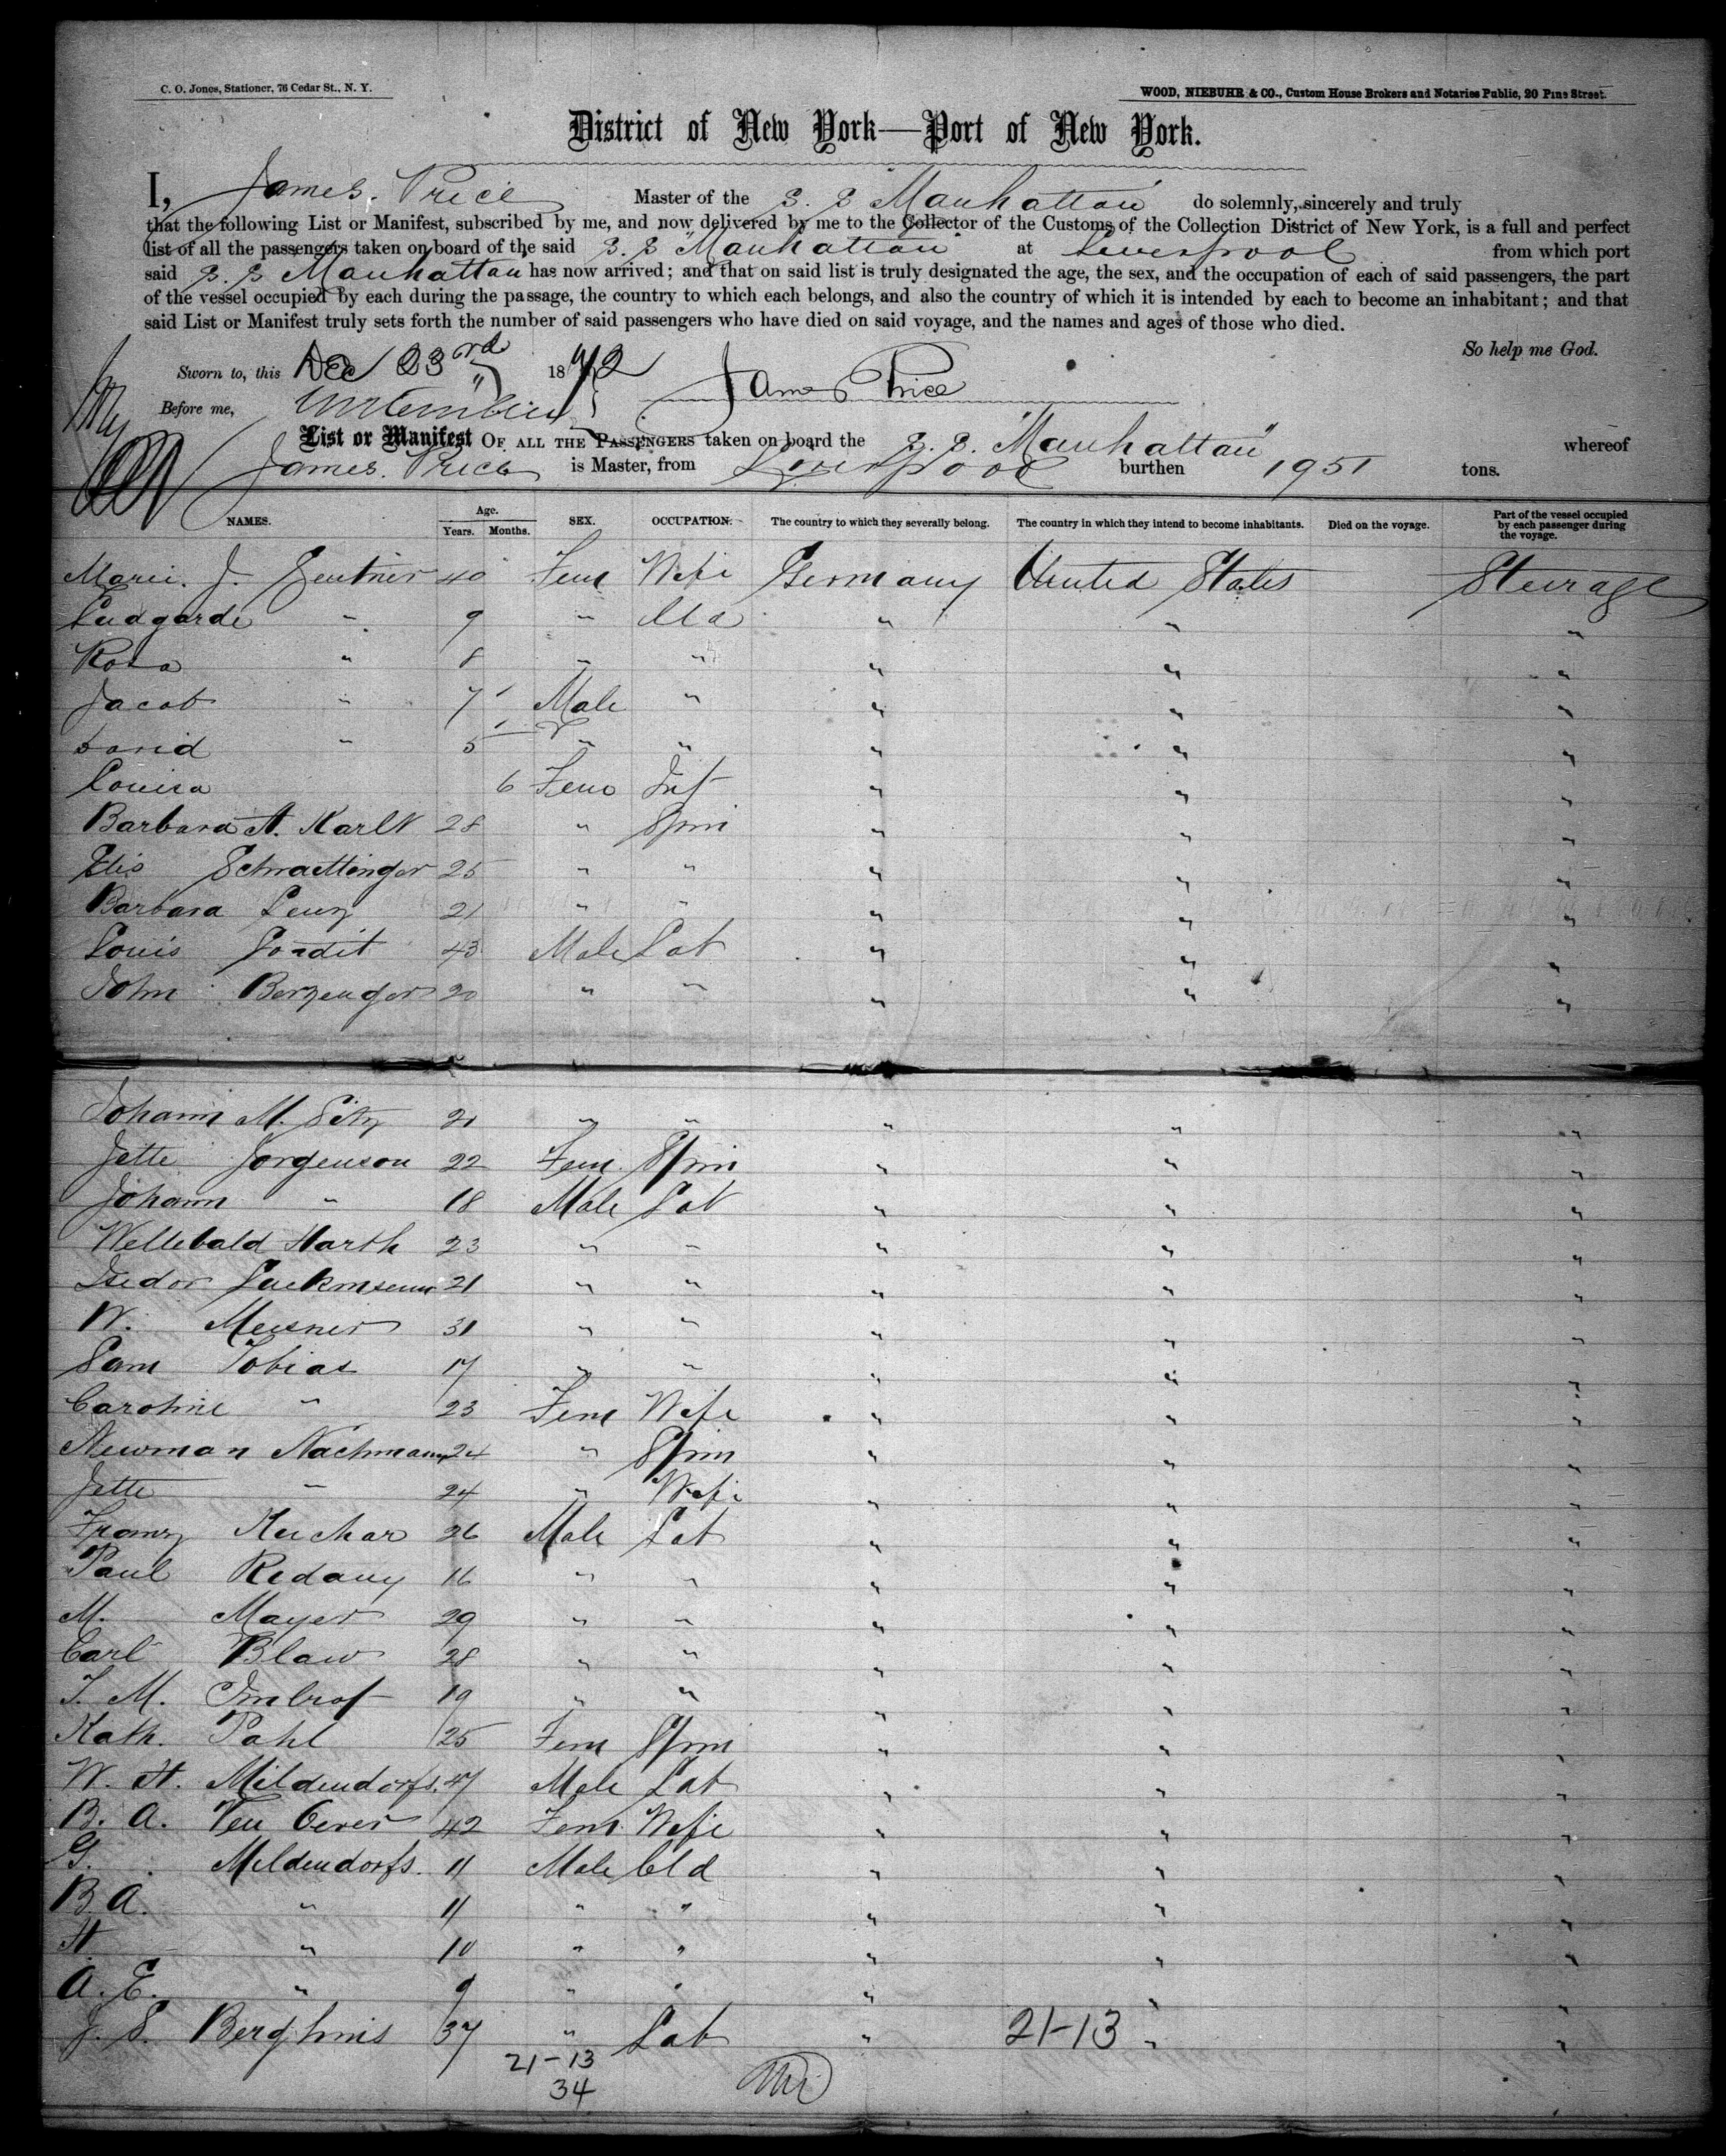 C. O. Jones, Stationer, 76 Cedar St., N. Y.
WOOD, NIEBUHR & CO., Custom House Brokers and Notaries Public, 20 Pine Street.
District of New York—Port of New York.
I, James. Price Master of the S. S "Manhattan" do solemnly, sincerely and truly
that the following List or Manifest, subscribed by me, and now delivered by me to the Collector of the Customs of the Collection District of New York, is a full and perfect
list of all the passengers taken on board of the said S. S "Manhattan" at Liverpool from which port
said S. S Manhattan has now arrived; and that on said list is truly designated the age, the sex, and the occupation of each of said passengers, the part
of the vessel occupied by each during the passage, the country to which each belongs, and also the country of which it is intended by each to become an inhabitant; and that
said List or Manifest truly sets forth the number of said passengers who have died on said voyage, and the names and ages of those who died.
So help me God.
Sworn to, this Dec 23rd 1872
James Price
Before me,
List or Manifest OF ALL THE PASSENGERS taken on board the S. S. "Manhattan" whereof
James. Price is Master, from Liverpool burthen 1951 tons.
NAMES. Age. Years. Months. SEX. OCCUPATION. The country to which they severally belong. The country in which they intend to become inhabitants. Died on the voyage. Part of the vessel occupied by each passenger during the voyage.
Marie. J. Zentner 40 Fem Wife Germany United States Steerage
Ludgarde " 9 " Cld " " "
Rosa " 8 " " " " "
Jacob " 7 Male " " " "
David " 5 " " " " "
Louisa 6 Fem Inf " " "
Barbara A. Karln 28 " Spin " " "
Elis Schraettinger 25 " " " " "
Barbara Lenz 21 " " " " "
Louis 43 Male Lab " " "
John Berzenger 20 " " " " "
Johann M. Seitz 21 " " " " "
Jette Jorgenson 22 Fem. Spin " " "
Johann " 18 Male Lab " " "
Wellebald Harth 23 " " " " "
Isedor 21 " " " " "
W. Meisner 31 " " " " "
Sam Tobias 17 " " " " "
Caroline " 23 Fem Wife " " "
Newman Nachmann 24 " Spin " " "
Jette " 24 " Wife " " "
Franz Kuchar 26 Male Lab " " "
Paul Redany 16 " " " " "
M. Mayer 29 " " " " "
Carl Blaw 28 " " " " "
T. M. Imhof 19 " " " " "
Kath. Pahl 25 Fem Spin " " "
W. H. Mildendorfs. 47 Male Lab " " "
B. A. Ven Oever 42 Fem. Wife " " "
G. Mildendorfs. 11 Male Cld " " "
B. A. " 11 " " " " "
H. " 10 " " " " "
A. E. " 9 " " " " "
J. S. Berghuis 37 " Lab " 21-13 " "
21-13
34